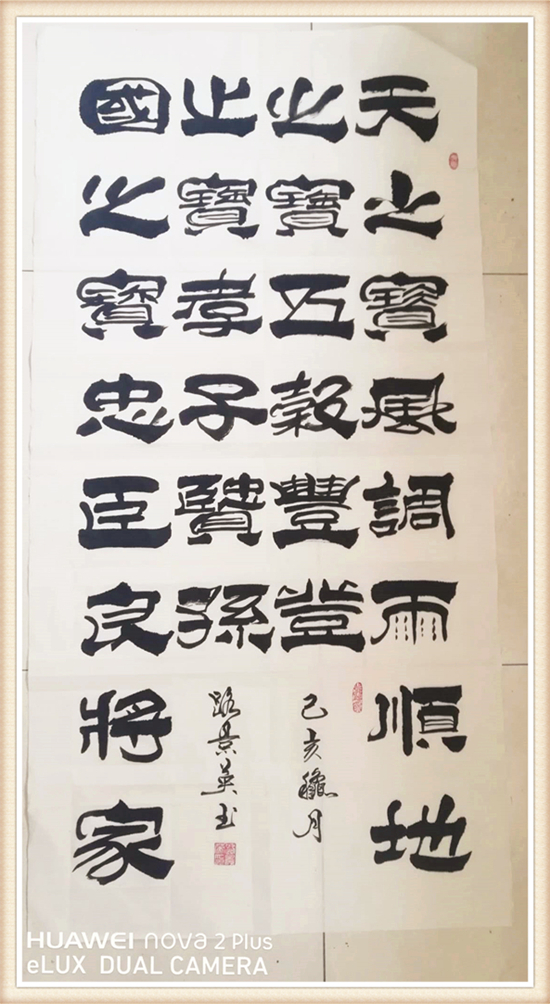 天之寶風調雨順地
之寶五穀豐登
己亥穐月
國之寶忠臣良將家
之寶孝子賢孫
路景英书
HUAWEI nova 2 Plus
eLUX DUAL CAMERA